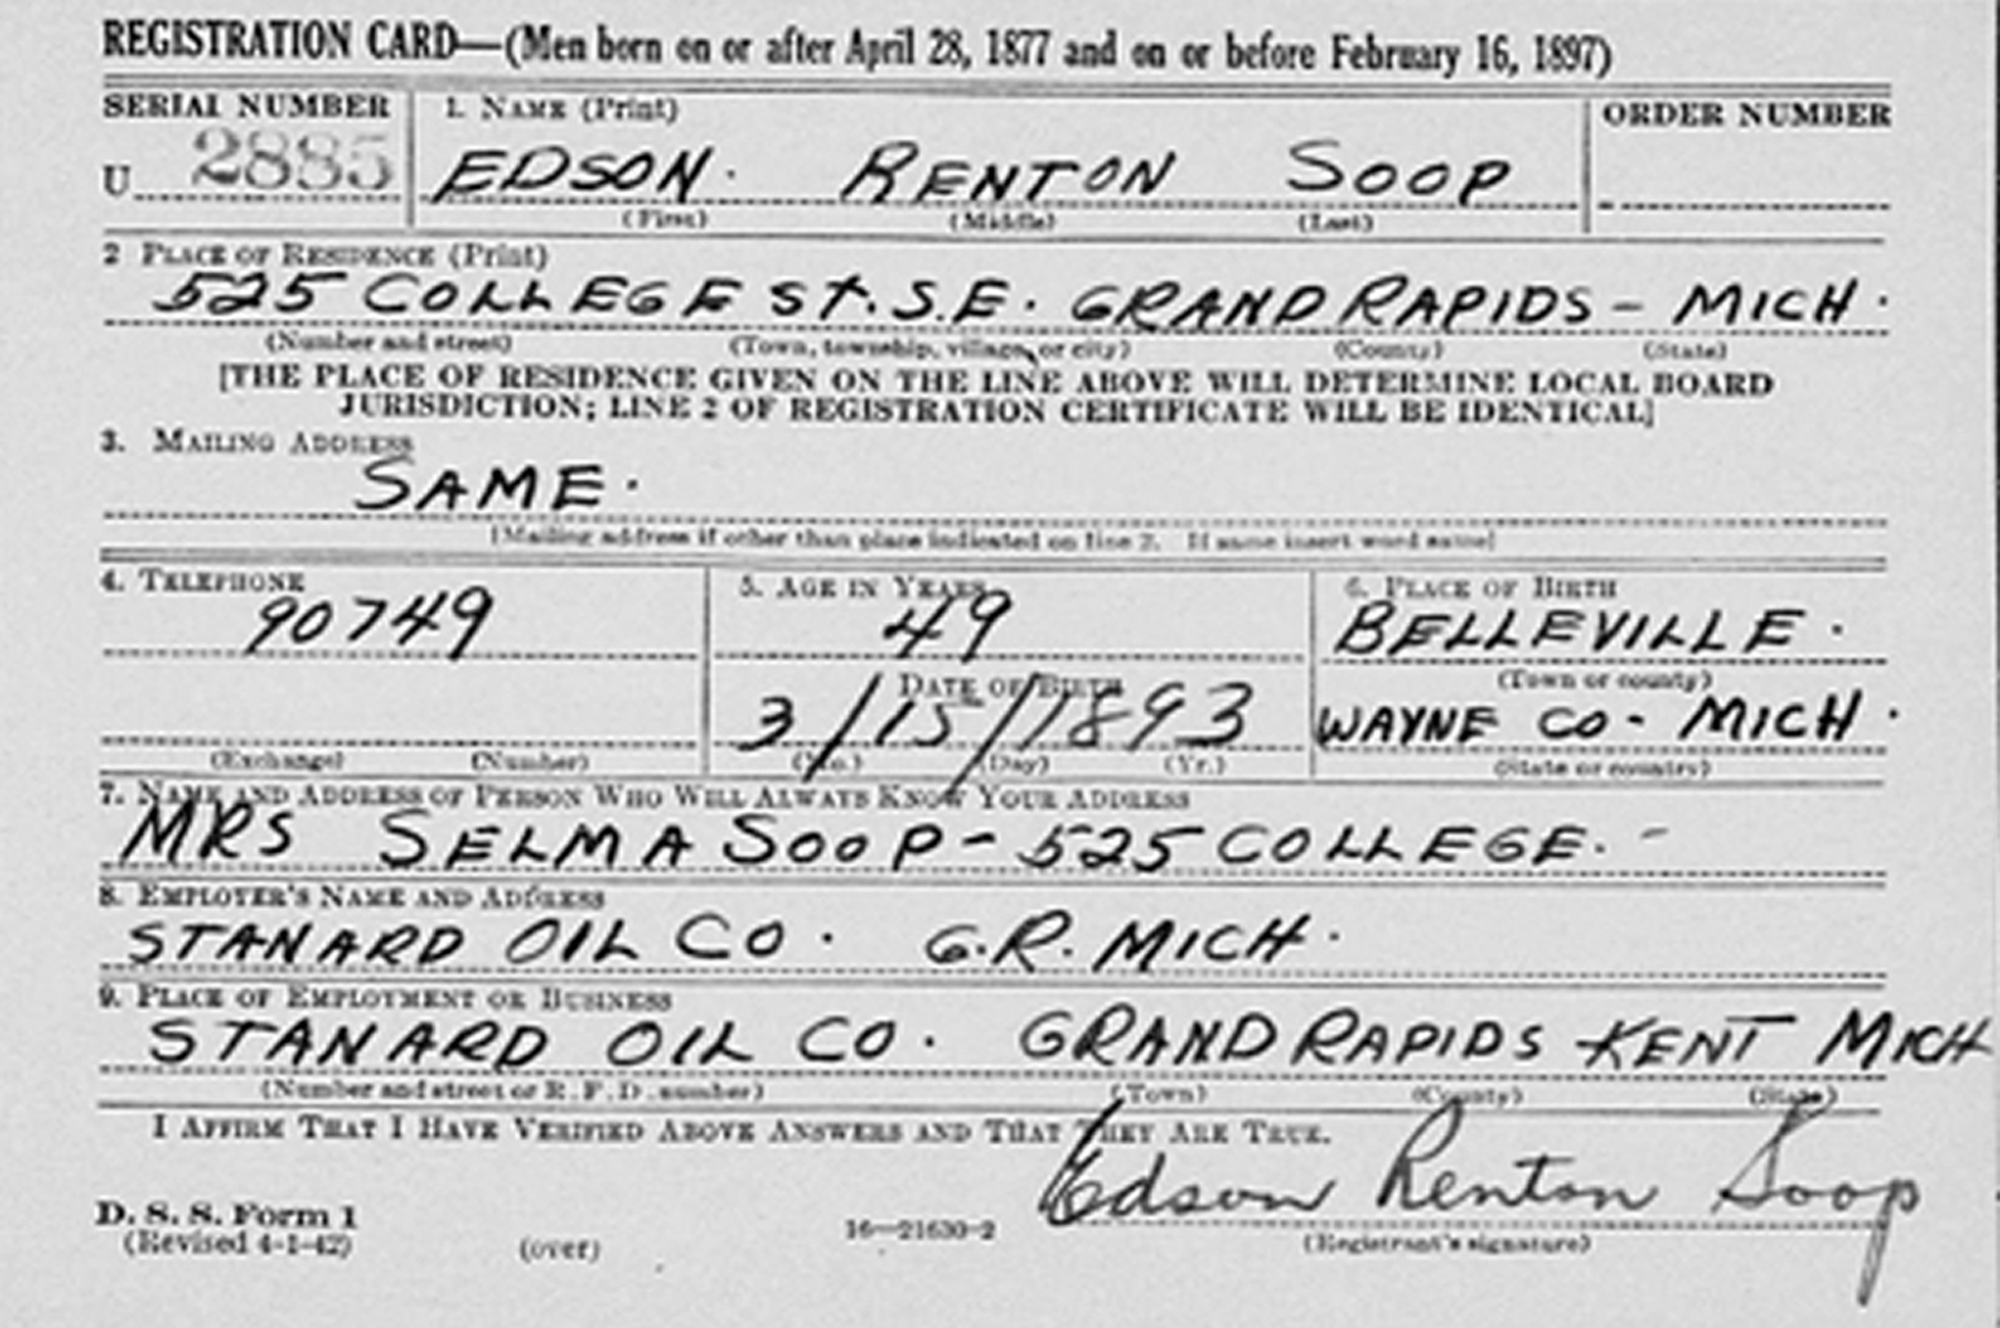 REGISTRATION CARD—(Men born on or after April 28, 1877 and on or before February 16, 1897)
SERIAL NUMBER 1. NAME (Print) ORDER NUMBER
U 2885 EDSON. RENTON SOOP
(First) (Middle) (Last)
2 PLACE OF RESIDENCE (Print)
525 COLLEGE St. S.E. GRAND RAPIDS - MICH.
(Number and street) (Town, township, village, or city) (County) (State)
[THE PLACE OF RESIDENCE GIVEN ON THE LINE ABOVE WILL DETERMINE LOCAL BOARD
JURISDICTION; LINE 2 OF REGISTRATION CERTIFICATE WILL BE IDENTICAL]
3. MAILING ADDRESS
SAME.
[Mailing address if other than place indicated on line 2. If same insert word same]
4. TELEPHONE 5. AGE IN YEARS 6. PLACE OF BIRTH
90749 49 BELLEVILLE.
DATE OF BIRTH (Town or county)
3/15/1893 WAYNE CO- MICH.
(Exchange) (Number) (Mo.) (Day) (Yr.) (State or country)
7. NAME AND ADDRESS OF PERSON WHO WILL ALWAYS KNOW YOUR ADDRESS
MRS SELMA SOOP - 525 COLLEGE. -
8. EMPLOYER'S NAME AND ADDRESS
STANARD OIL CO. G.R. MICH.
9. PLACE OF EMPLOYMENT OR BUSINESS
STANARD OIL CO. GRAND RAPIDS KENT MICH
(Number and street or R.F.D. number) (Town) (County) (State)
I AFFIRM THAT I HAVE VERIFIED ABOVE ANSWERS AND THAT THEY ARE TRUE.
Edson Renton Soop
D. S. S. Form 1
(Revised 4-1-42) (over) 16—21630-2 (Registrant's signature)